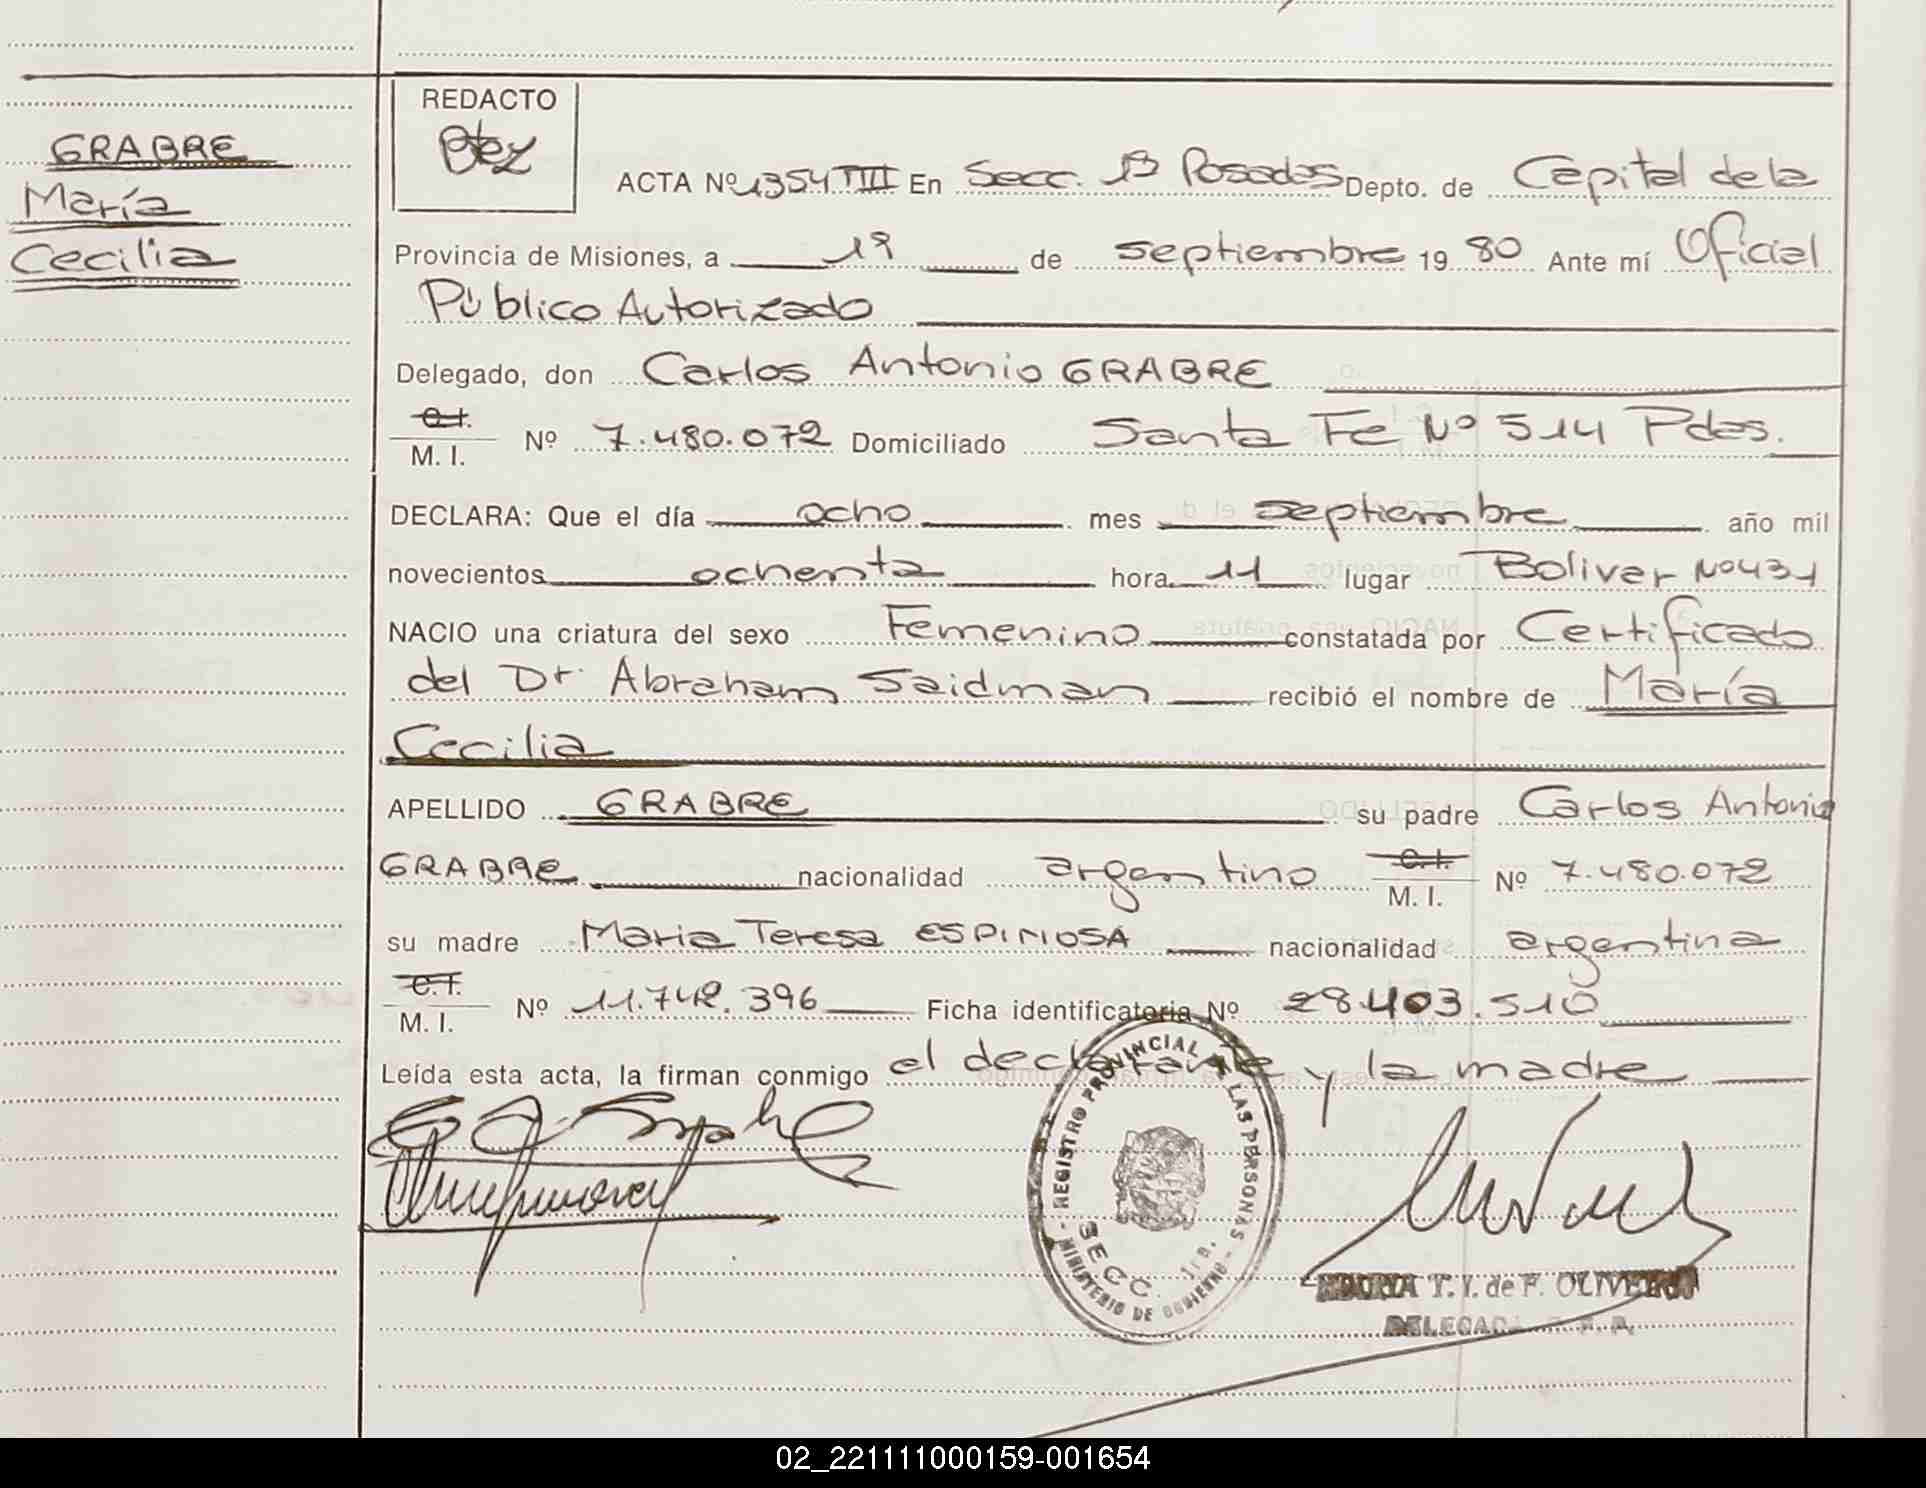 REDACTO
GRABRE
María
Cecilia
ACTA Nº 1354 TIII En Secc. 1ª Posadas Depto. de Capital de la
Provincia de Misiones, a 19 de septiembre 19 80 Ante mí Oficial
Público Autorizado
Delegado, don Carlos Antonio GRABRE
C.I.
M. I. Nº 7.480.072 Domiciliado Santa Fe Nº 514 Pdas.
DECLARA: Que el día ocho mes septiembre año mil
novecientos ochenta hora 11 lugar Bolivar Nº 431
NACIO una criatura del sexo Femenino constatada por Certificado
del Dr. Abraham Saidman recibió el nombre de María
Cecilia
APELLIDO GRABRE su padre Carlos Antonio
GRABRE nacionalidad argentino C.I. M. I. Nº 7.480.072
su madre Maria Teresa ESPINOSA nacionalidad argentina
C.I.
M. I. Nº 11.742.396 Ficha identificatoria Nº 28.403.510
Leída esta acta, la firman conmigo el declarante y la madre
REGISTRO PROVINCIAL DE LAS PERSONAS
SECC. 1ra.
MINISTERIO DE GOBIERNO
T. I. de F. OLIVEIRA
02_221111000159-001654